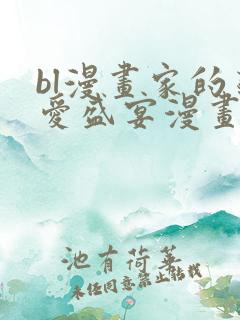 bl漫畫家的
愛盛宴漫畫
池有荷華
未经同意禁止转载